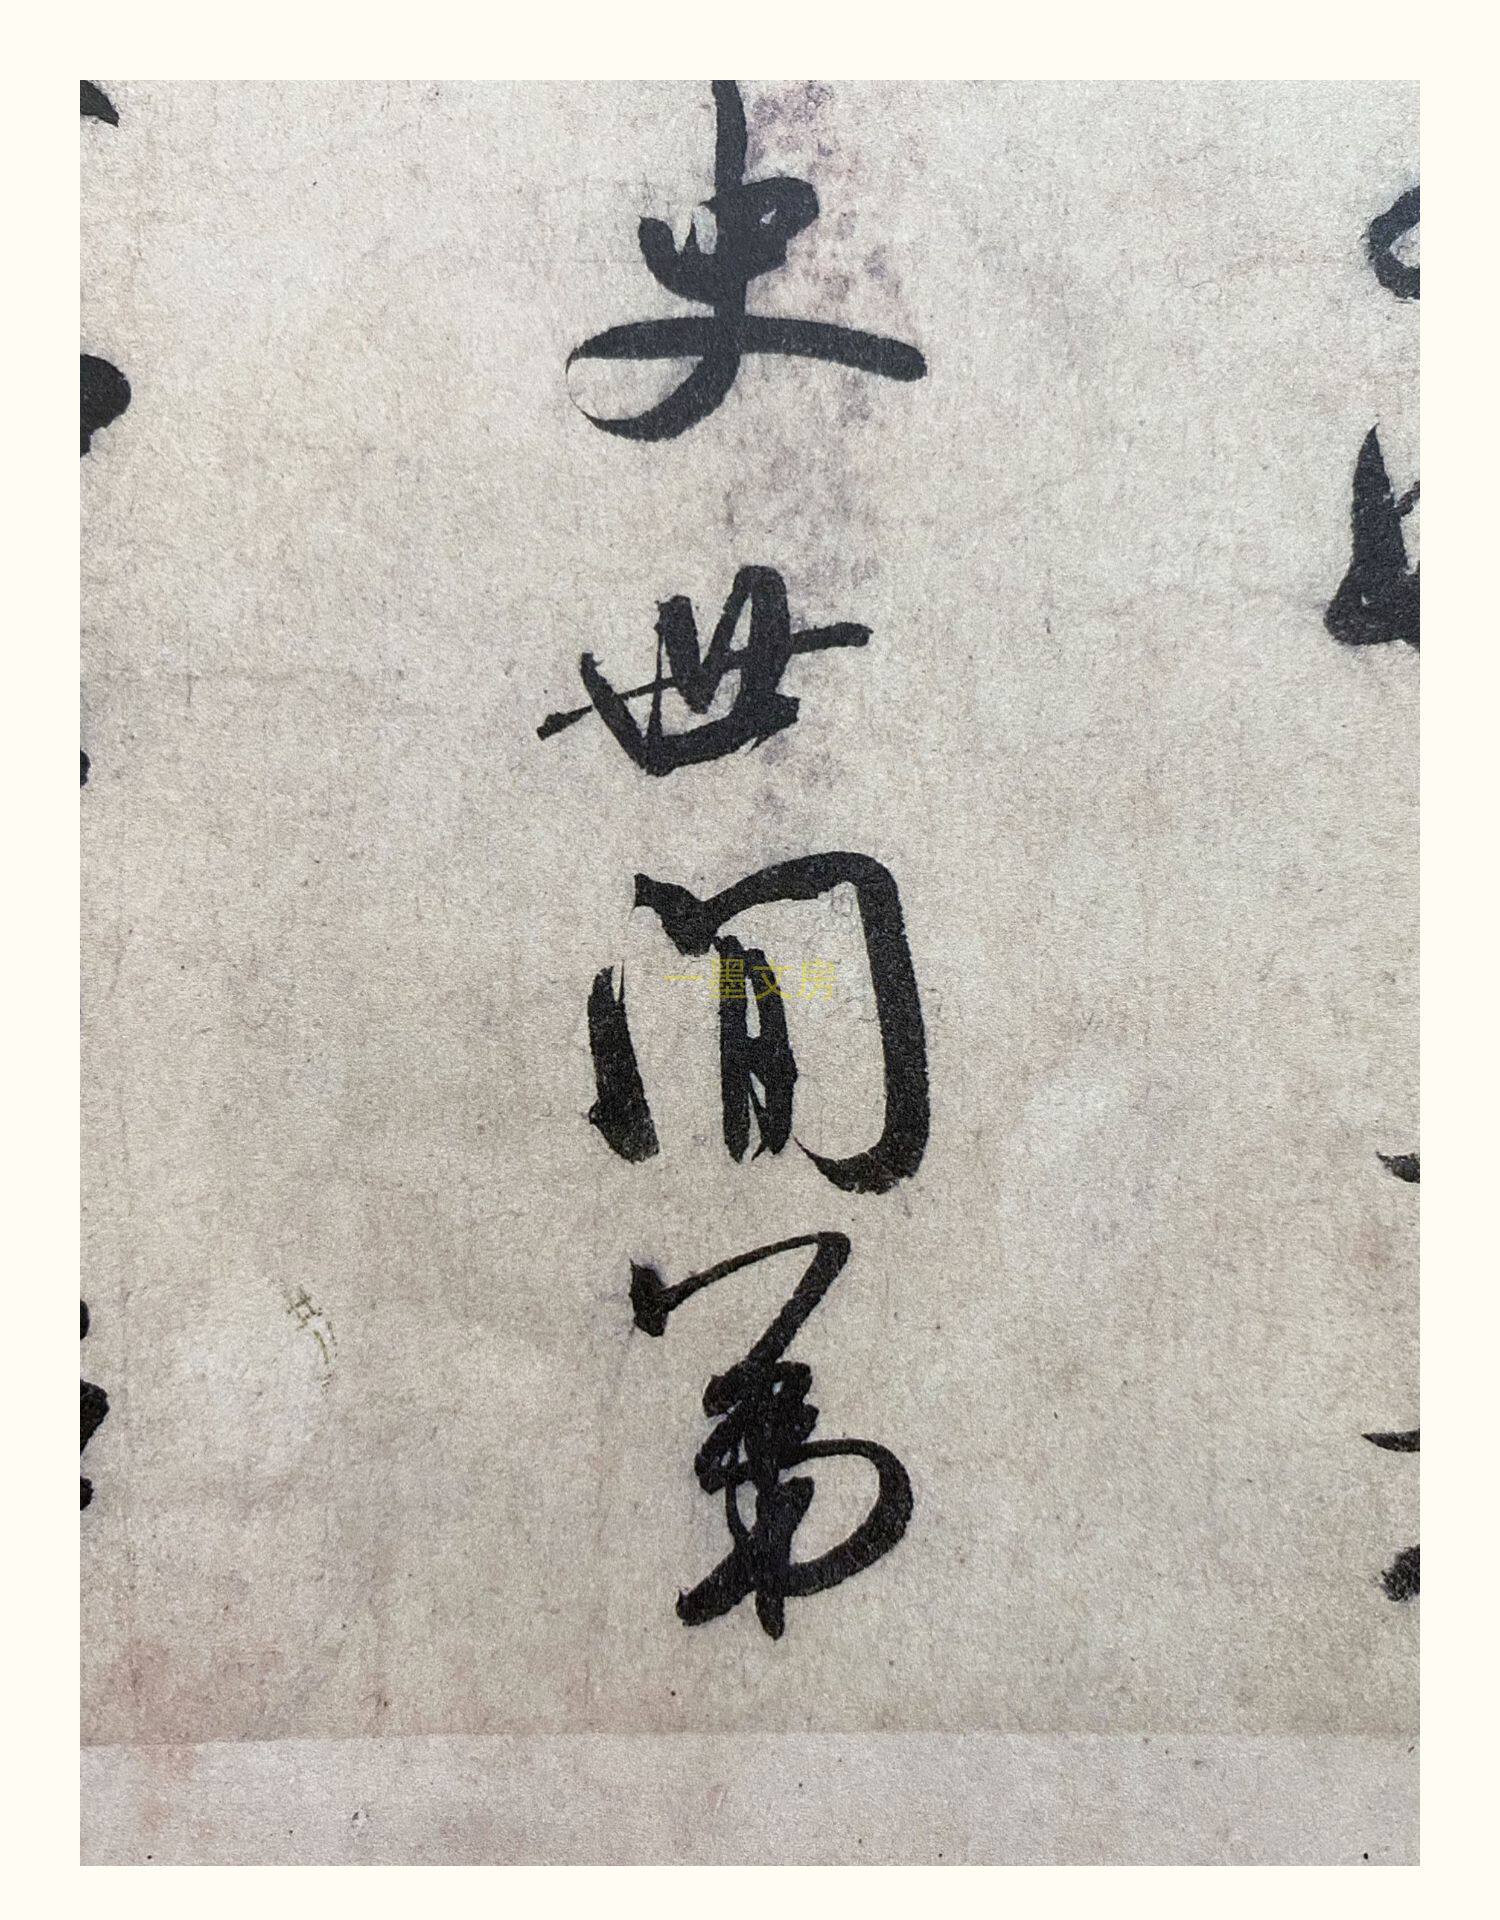 史世間第
一墨文房